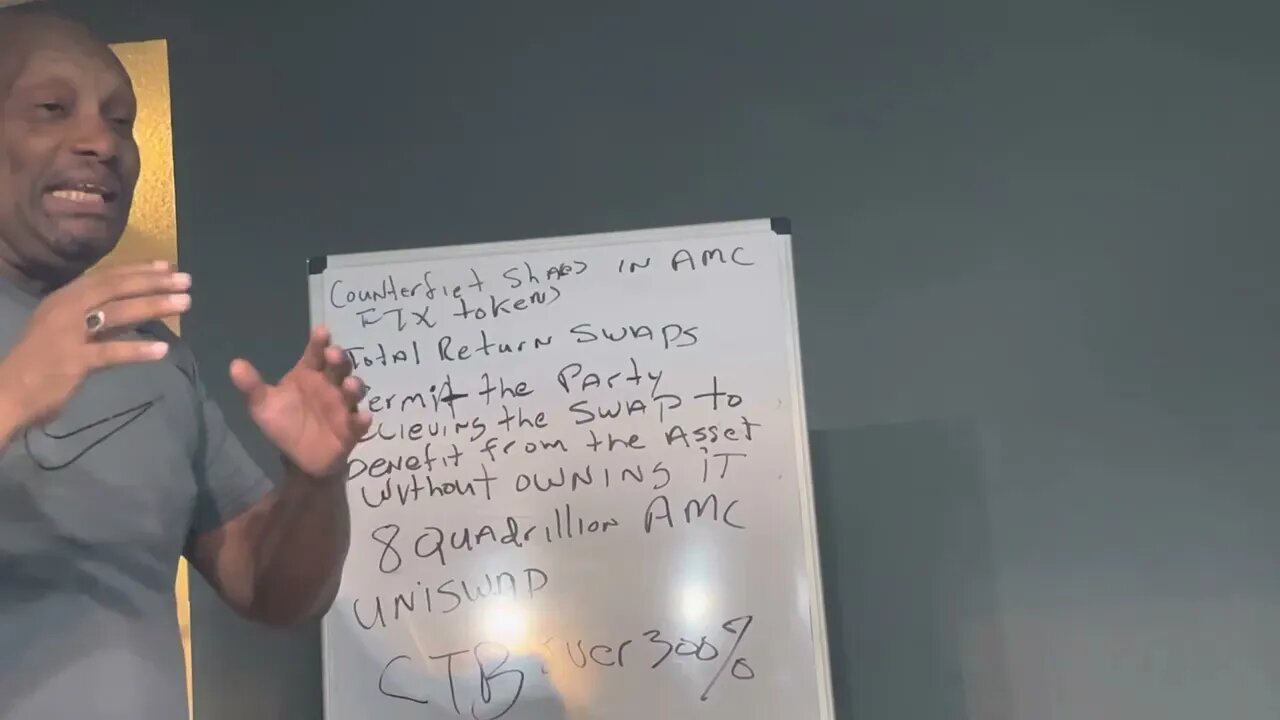 Counterfiet Shares IN AMC
FTX tokens
Total Return SWAPS
ermit the PArty
ecieving the SWAP to
benefit from the Asset
without OWNING iT
8 QUAdrillion AMC
UNISWAP
CTB over 300%